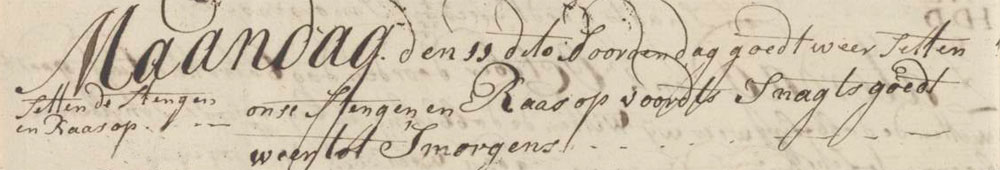 Maandag. den 11 dito: doorden dag goedt weer setten
settende Stengen
en Raas op. . _ _
onse Stengen en Raas op voordts Snagts goedt
weer tot Smorgens . . . _ _ _ _